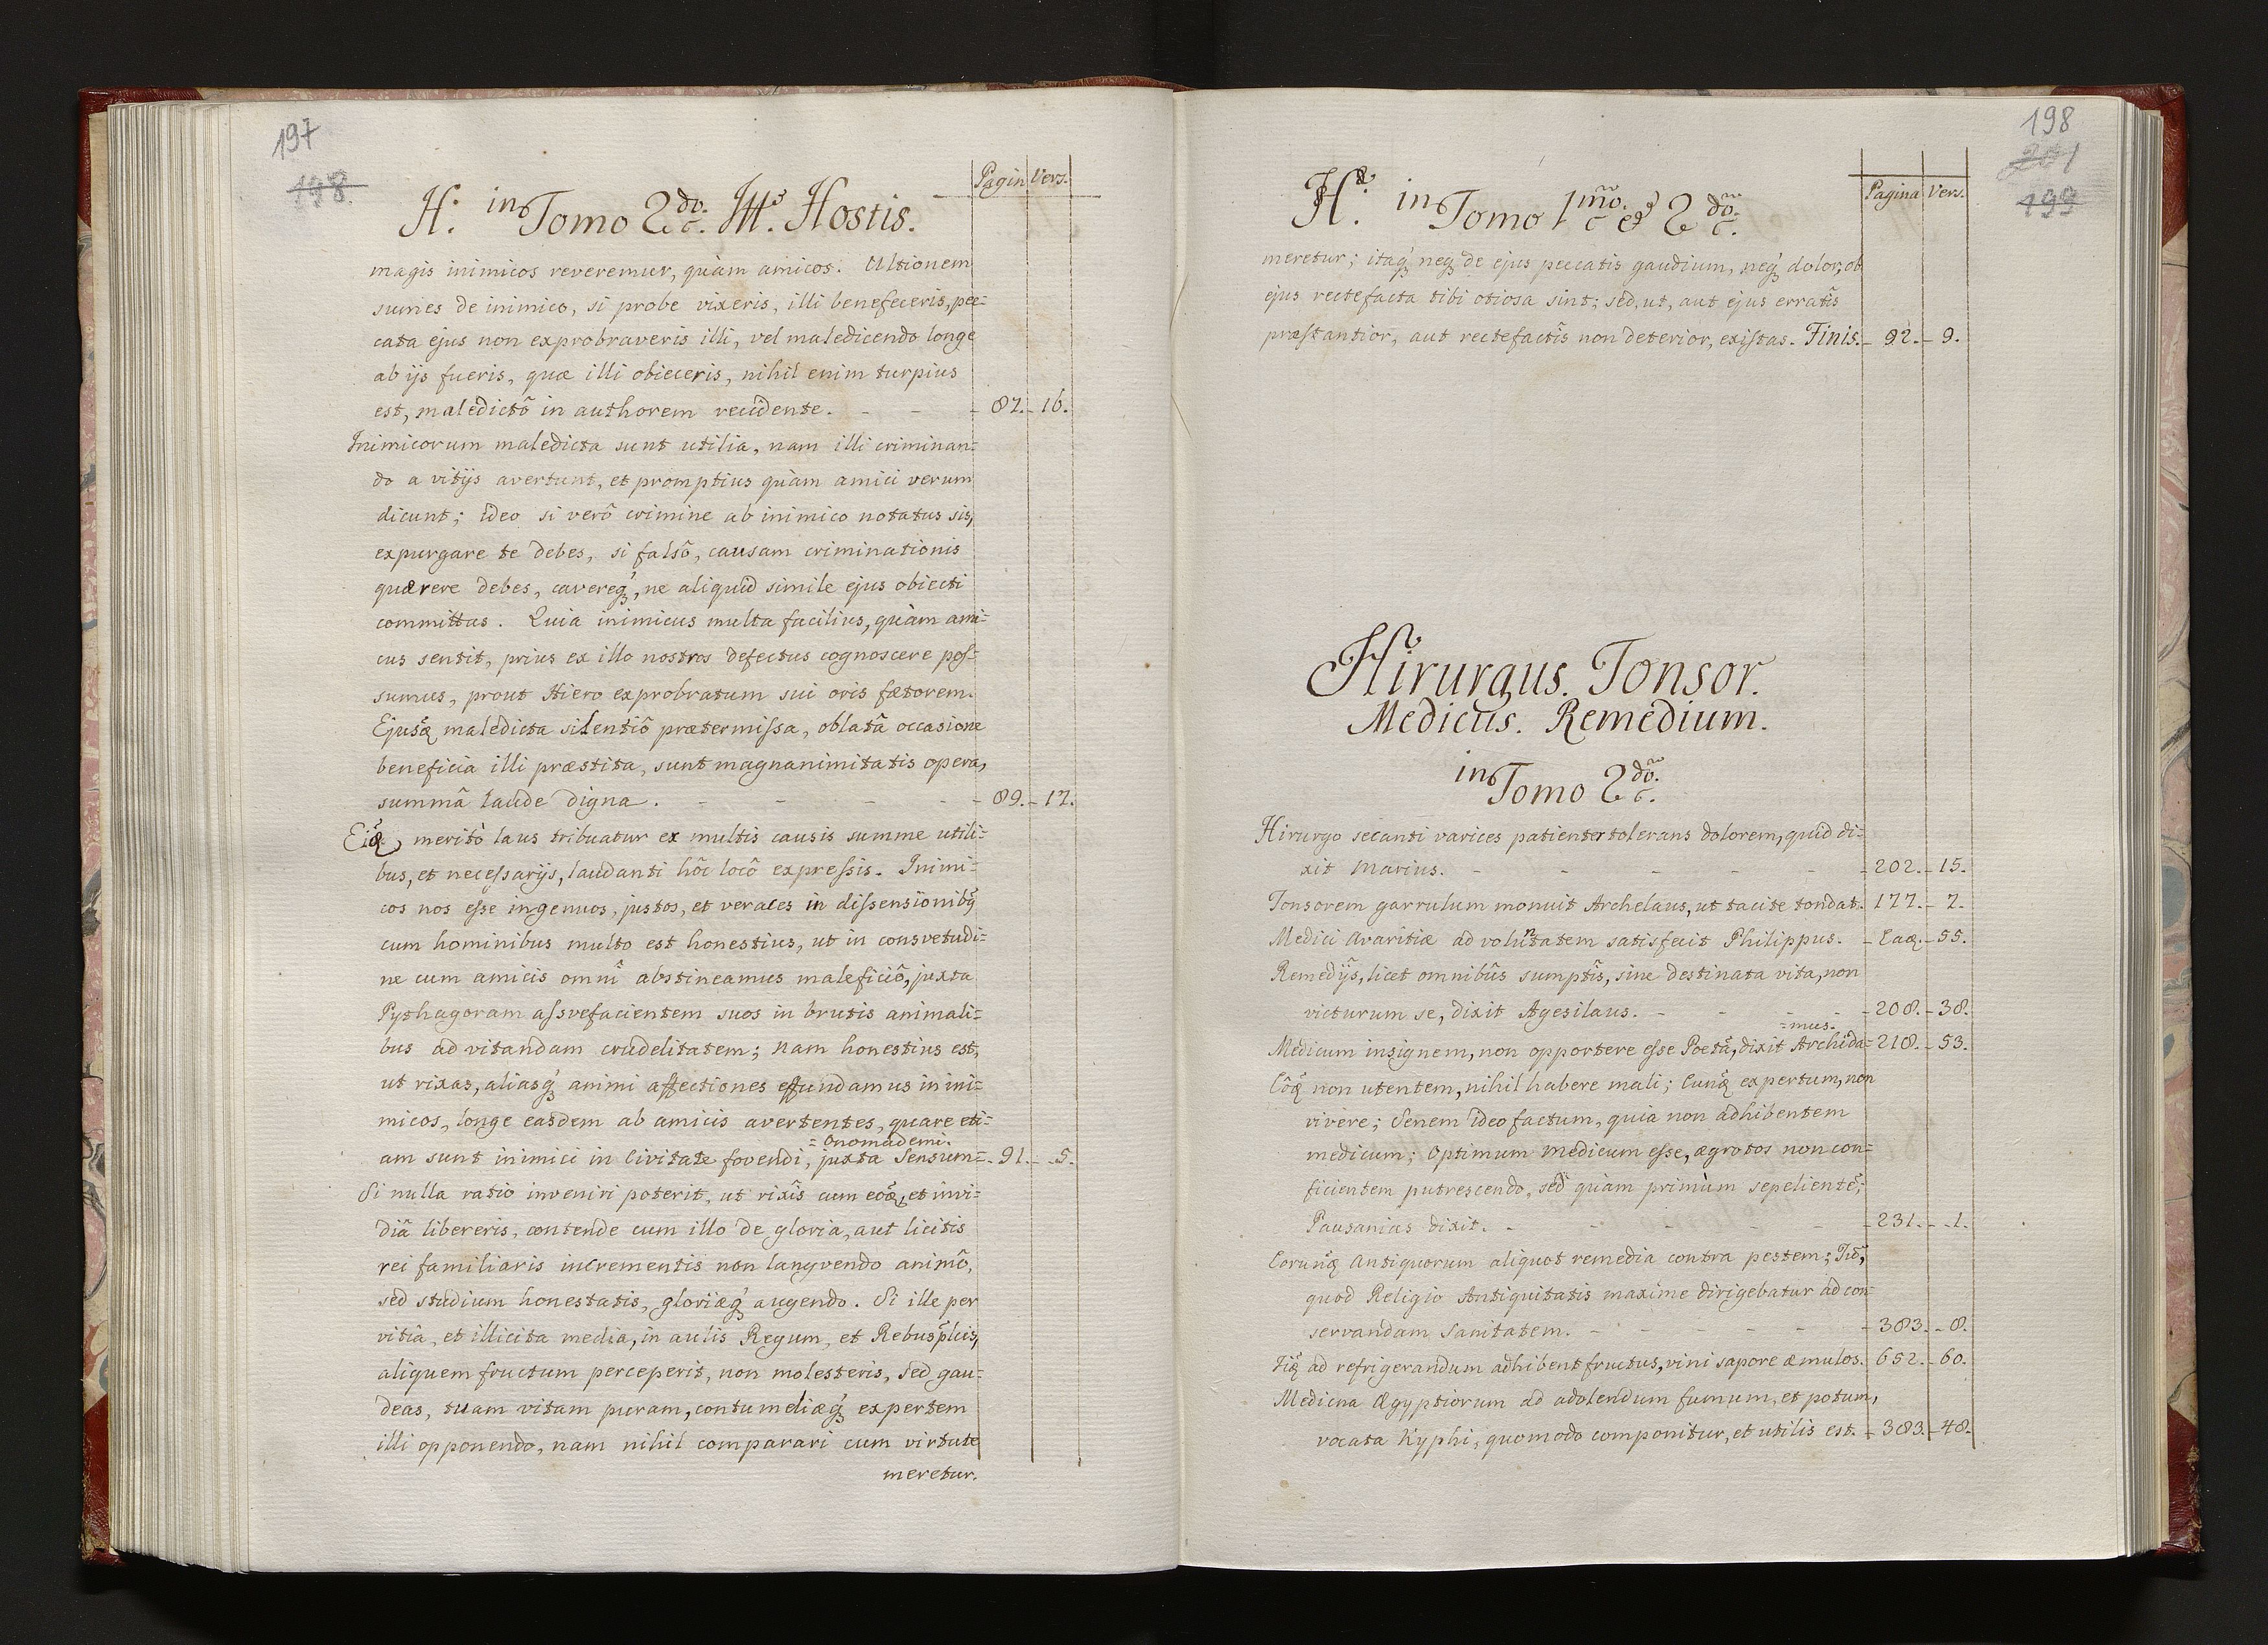 197
198.
Pagin Vers.
H. in Tomo 2do. Hostis.
magis inimicos reveremur, quàm amicos. Ultionem
sumes de inimico, si probe vixeris, illi benefeceris, pec=
cata ejus non exprobraveris illi, vel maledicendo longe
ab ijs fueris, quæ illi obieceris, nihil enim turpius
est, maledictô in authorem recidente. - - - 87. - 16.
Inimicorum maledicta sunt utilia, nam illi criminan=
do a vitijs avertunt, et promptius quàm amici verum
dicunt; ideo si verô crimine ab inimico notatus sis,
expurgare te debes, si falsô, causam criminationis
quærere debes, cavereq3, ne aliquid simile ejus obiecti
committas. Quia inimicus multa facilius, quàm ami=
cus sentit, prius ex illo nostros defectus cognoscere pos=
sumus, prout Hiero exprobratum sui oris fætorem.
Ejusq maledicta silentiô prætermissa, oblatâ occasione
beneficia illi præstita, sunt magnanimitatis opera,
summâ laude digna. - - - - 89. - 17.
Eiq, meritò laus tribuatur ex multis causis summe utili=
bus, et necessarijs, laudanti hôc locô expressis. Inimi=
cos nos esse ingenuos, justos, et veraces in dissensionibq
cum hominibus multo est honestius, ut in consvetudi=
ne cum amicis omnî abstineamus maleficiô, juxta
Pythagoram assvefacientem suos in brutis animali=
bus ad vitandam crudelitatem; nam honestius est,
ut rixas, aliasq3 animi affectiones effundamus in ini=
micos, longe easdem ab amicis avertentes, quare eti=
= Onomademi.
am sunt inimici in Civitate fovendi, juxta Sensum= - 91. - 5.
Si nulla ratio inveniri poterit, ut rixîs cum eôq, et invi=
diâ libereris, contende cum illo de gloria, aut licitis
rei familiaris incrementis non langvendo animô,
sed studium honestatis, gloriæq3 augendo. Si ille per
vitia, et illicita media, in aulis Regum, et Rebusplicis,
aliquem fructum perceperit, non molesteris, sed gau=
deas, tuam vitam puram, contumeliæq3 expertem
illi opponendo, nam nihil comparari cum virtute
meretur.
198
201
199
Pagina Vers.
H. in Tomo 1mo. et 2do.
meretur; itaq3 neq3 de ejus peccatis gaudium, neq3 dolor, ob
ejus rectefacta tibi otiosa sint; sed, ut, aut ejus erratîs
præstantior, aut rectefactîs non deterior, existas. Finis. - 92. - 9.
Hirurgus. Tonsor.
Medicus. Remedium.
in Tomo 2do.
Hirurgo secanti varices patienter tolerans dolorem, quid di=
xit Marius. - - - - - 202. - 15.
Tonsorem garrulum monuit Archelaus, ut tacite tondat. 177. - 7.
Medici avaritiæ ad voluntatem satisfecit Philippus. - Eaq. - 55.
Remedijs, licet omnibûs sumptîs, sine destinata vita, non
victurum se, dixit Agesilaus. - - - - 208. - 38.
=mus.
Medicum insignem, non opportere esse Poetâ, dixit Archida= 218. - 53.
Eôq non utentem, nihil habere mali; Eunq expertum, non
vivere; Senem ideo factum, quia non adhibentem
medicum; Optimum medicum esse, ægrotos non con=
ficientem putrescendo, sed quàm primùm sepelientê;
Pausanias dixit. - - - - - 231. - 1.
Eorunq Antiquorum aliquot remedia contra pestem;
quod Religio Antiquitatis maxime dirigebatur ad con=
servandam Sanitatem. - - - - - 383. - 8.
ad refrigerandum adhibent fructus, vini sapore æmulos. 652. - 60.
Medicina Ægyptiorum ad adolendum fumum, et potum,
vocata Kyphi, quomodo componitur, et utilis est. - 383. - 48.